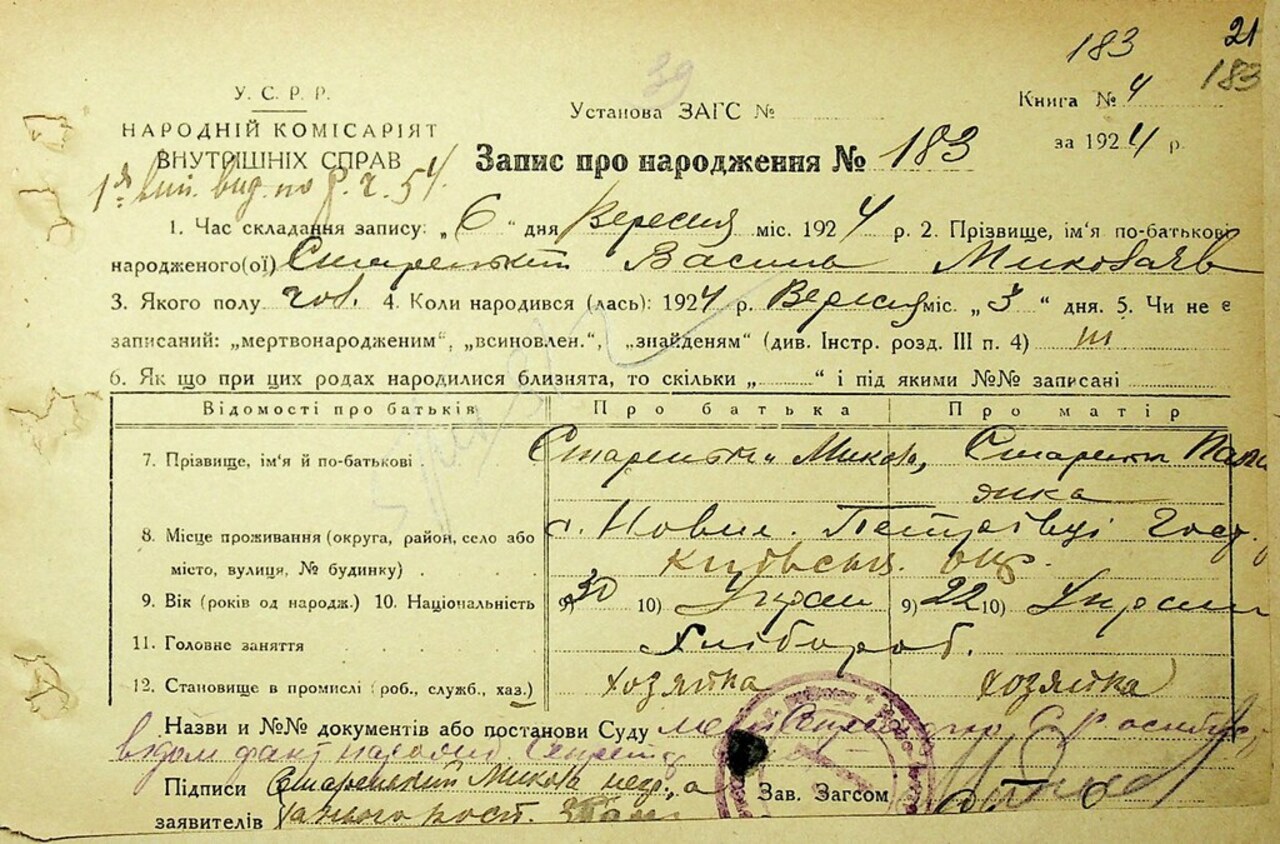 183
21
183
39
У. С. Р. Р.
НАРОДНІЙ КОМІСАРІЯТ
ВНУТРІШНІХ СПРАВ
Установа ЗАГС №
Книга № 4
за 1924 р.
Запис про народження № 183
54.
1. Час складання запису: „6“ дня Вересня міс. 1924 р. 2. Прізвище, ім'я по-батькові
народженого(ої) Старенький Василь Миколаїв
3. Якого полу чол. 4. Коли народився (лась): 1924 р. Вересня міс. „3“ дня. 5. Чи не є
записаний: „мертвонародженим“, „всиновлен.“, „знайденям“ (див. Інстр. розд. III п. 4)
6. Як що при цих родах народилися близнята, то скільки „ “ і під якими №№ записані
Відомості про батьків Про батька Про матір
7. Прізвище, ім'я й по-батькові Старенький Микола,
8. Місце проживання (округа, район, село або с. Нових Петрівці Гост.
місто, вулиця, № будинку) Київськ. окр.
9. Вік (років од народж.) 10. Національність 9) 30 10) Украї 9) 22 10) Украї
11. Головне заняття Хлібороб.
12. Становище в промислі (роб., служб., хаз.) хозяйка хозяйка
Назви и №№ документів або постанови Суду
Підписи Старенький Микола
заявителів
Зав. Загсом